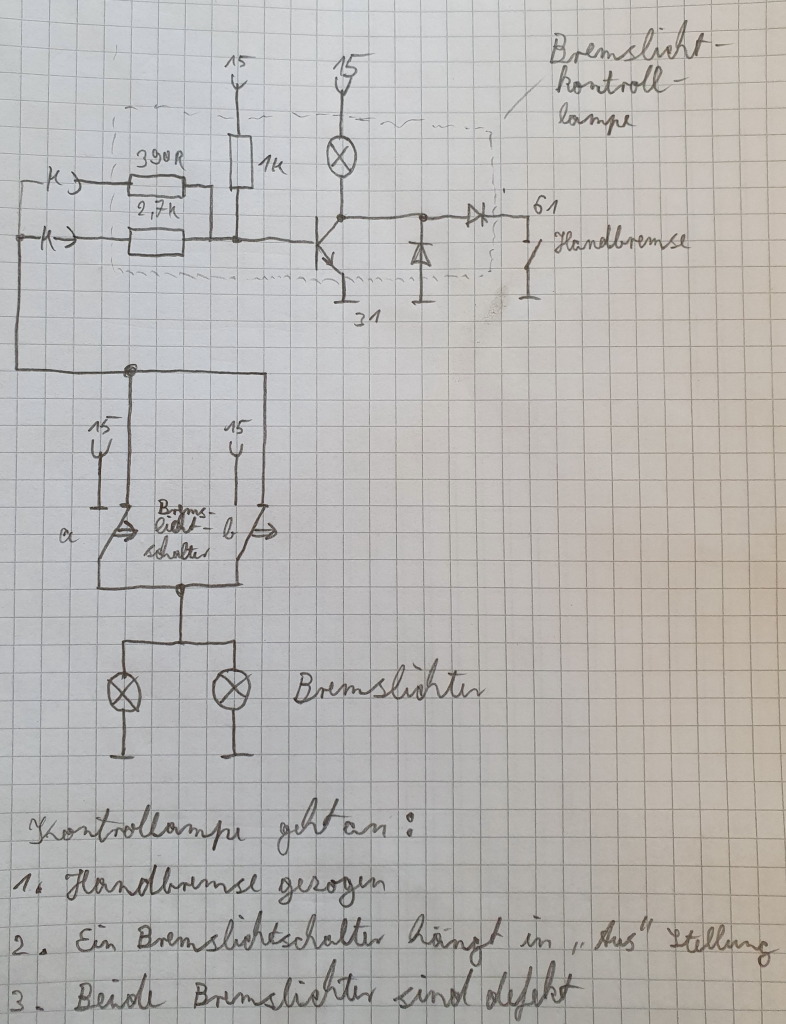 15
15
Bremslicht-
kontroll-
lampe
390R
1K
K
2,7K
K
61
Handbremse
31
15
15
a
Brems-
licht-
schalter
b
Bremslichter
Kontrollampe geht an:
1. Handbremse gezogen
2. Ein Bremslichtschalter hängt in „Aus" Stellung
3. Beide Bremslichter sind defekt